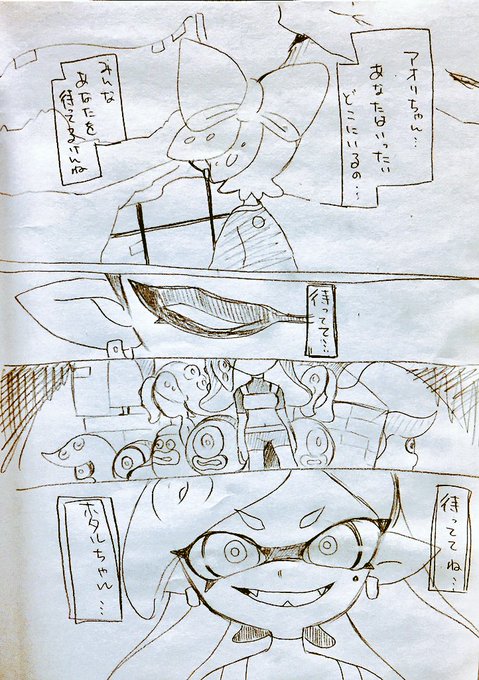 アオリちゃん…
あなたはいったい
どこにいるの…
みんな
あなたを
待ってるけんね
待ってて…
待っててね…
ホタルちゃん…